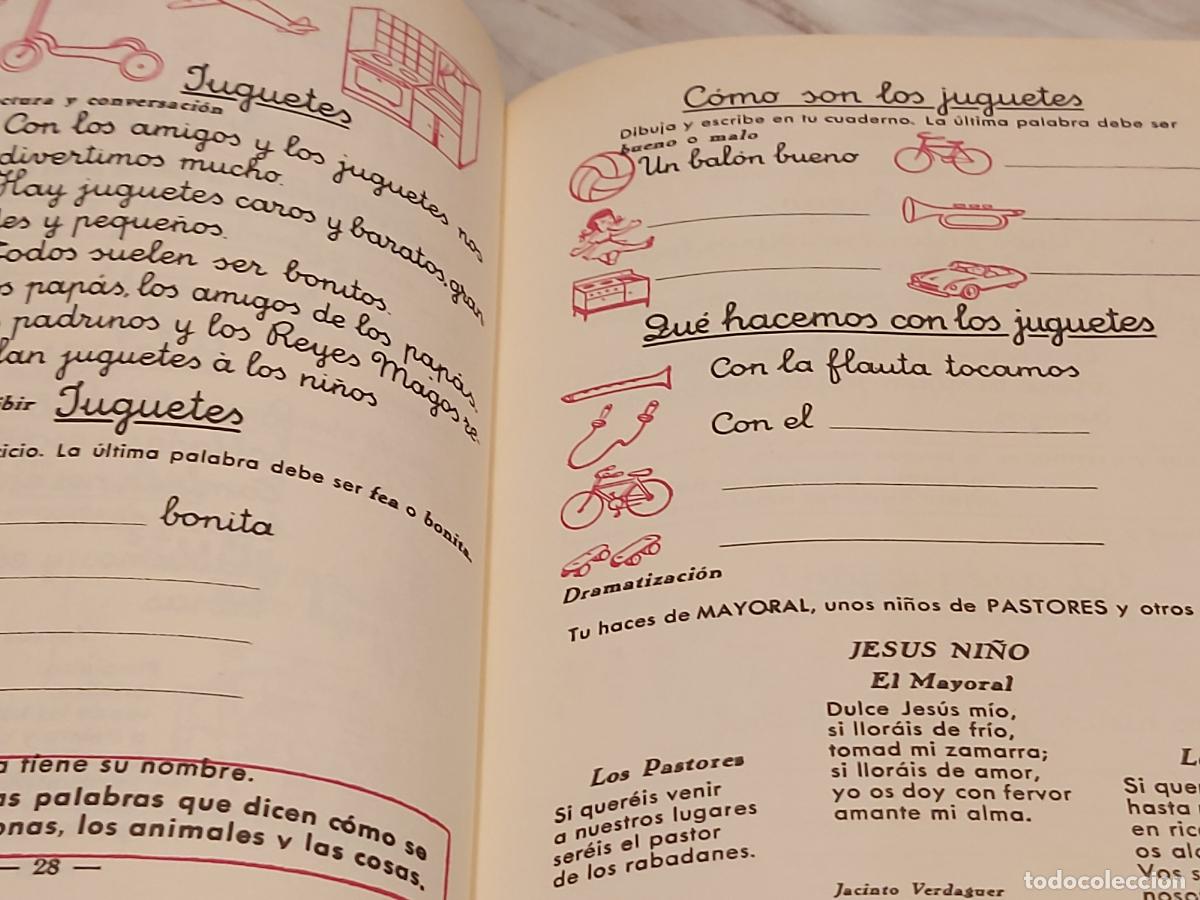 Juguetes
ctura y conversación
Con los amigos y los juguetes nos
divertimos mucho.
Hay juguetes caros y baratos, gran
des y pequeños.
Todos suelen ser bonitos.
s papás, los amigos de los papás,
padrinos y los Reyes Magos re-
lan juguetes à los niños
ibir Juguetes
icio. La última palabra debe ser fea o bonita.
bonita
a tiene su nombre.
as palabras que dicen cómo se
onas, los animales y las cosas.
— 28 —
Cómo son los juguetes
Dibuja y escribe en tu cuaderno. La última palabra debe ser
bueno o malo
Un balón bueno
Qué hacemos con los juguetes
Con la flauta tocamos
Con el
Dramatización
Tu haces de MAYORAL, unos niños de PASTORES y otros
JESUS NIÑO
El Mayoral
Dulce Jesús mío,
si lloráis de frío,
tomad mi zamarra;
si lloráis de amor,
yo os doy con fervor
amante mi alma.
Los Pastores
Si queréis venir
a nuestros lugares
seréis el pastor
de los rabadanes.
Jacinto Verdaguer
L
Si que
hasta
en ric
os al
Vos s
noso
todocoleccion